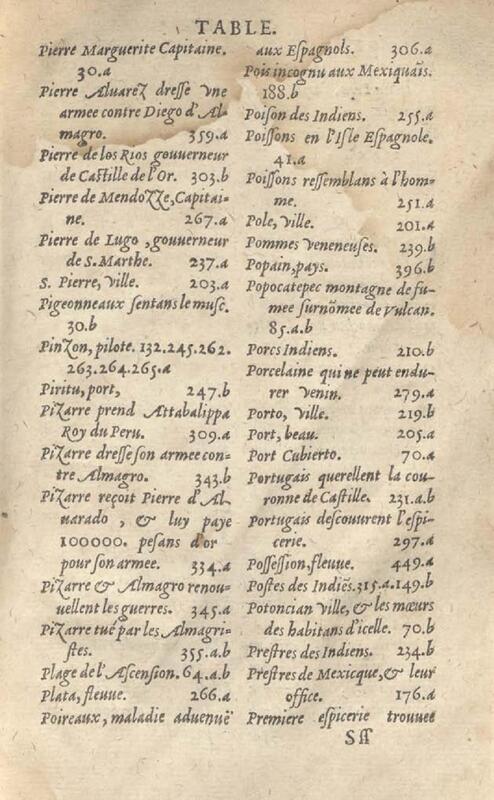 TABLE.
Pierre Marguerite Capitaine.
30.a
Pierre Aluarez dreſſe vne
armee contre Diego d'Al-
magro. 359.a
Pierre de los Rios gouuerneur
de Caſtille de l'Or. 303.b
Pierre de Mendozze, Capitai-
ne. 267.a
Pierre de Lugo, gouuerneur
de S. Marthe. 237.a
S. Pierre, ville. 203.a
Pigeonneaux ſentans le muſc.
30.b
Pinzon, pilote. 132.245.262.
263.264.265.a
Piritu, port, 247.b
Pizarre prend Attabalippa
Roy du Peru. 309.a
Pizarre dreſſe ſon armee con-
tre Almagro. 343.b
Pizarre reçoit Pierre d'Al
uarado, & luy paye
100000. peſans d'or
pour ſon armee. 334.a
Pizarre & Almagro renou-
uellent les guerres. 345.a
Pizarre tué par les Almagri-
ſtes. 355.a.b
Plage de l'Aſcenſion. 64.a.b
Plata, fleuue. 266.a
Poireaux, maladie aduenuë
aux Eſpagnols. 306.a
Pois incognu aux Mexiquais.
188.b
Poiſon des Indiens. 255.a
Poiſſons en l'Iſle Eſpagnole.
41.a
Poiſſons reſſemblans à l'hom-
me. 251.a
Pole, ville. 201.a
Pommes veneneuſes. 239.b
Popain, pays. 396.b
Popocatepec montagne de fu-
mee ſurnõmee de vulcan.
85.a.b
Porcs Indiens. 210.b
Porcelaine qui ne peut endu-
rer venin. 279.a
Porto, ville. 219.b
Port, beau. 205.a
Port Cubierto. 70.a
Portugais querellent la cou-
ronne de Caſtille. 231.a.b
Portugais deſcouurent l'eſpi-
cerie. 297.a
Poſſeſſion, fleuue. 449.a
Poſtes des Indiẽs. 315.a.149.b
Potoncian ville, & les mœurs
des habitans d'icelle. 70.b
Preſtres des Indiens. 234.b
Preſtres de Mexicque, & leur
office. 176.a
Premiere eſpicerie trouuee
Sſſ